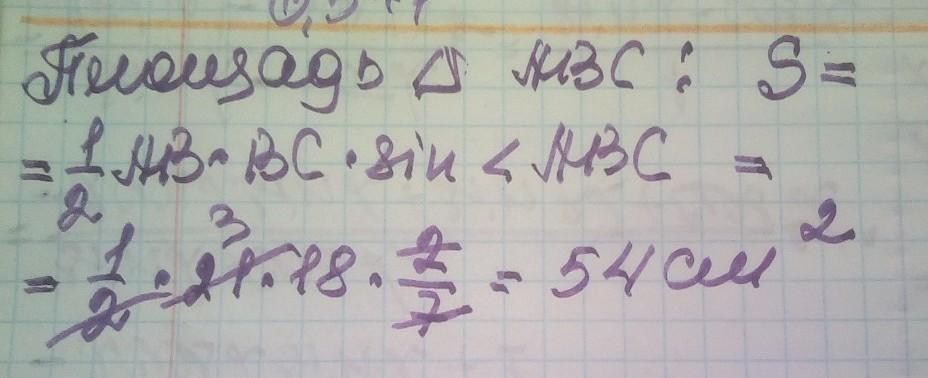 Площадь △ ABC: S =
= 1/2 AB · BC · sin < ABC =
= 1/2 · 21 3 · 18 · 2/7 = 54 см²